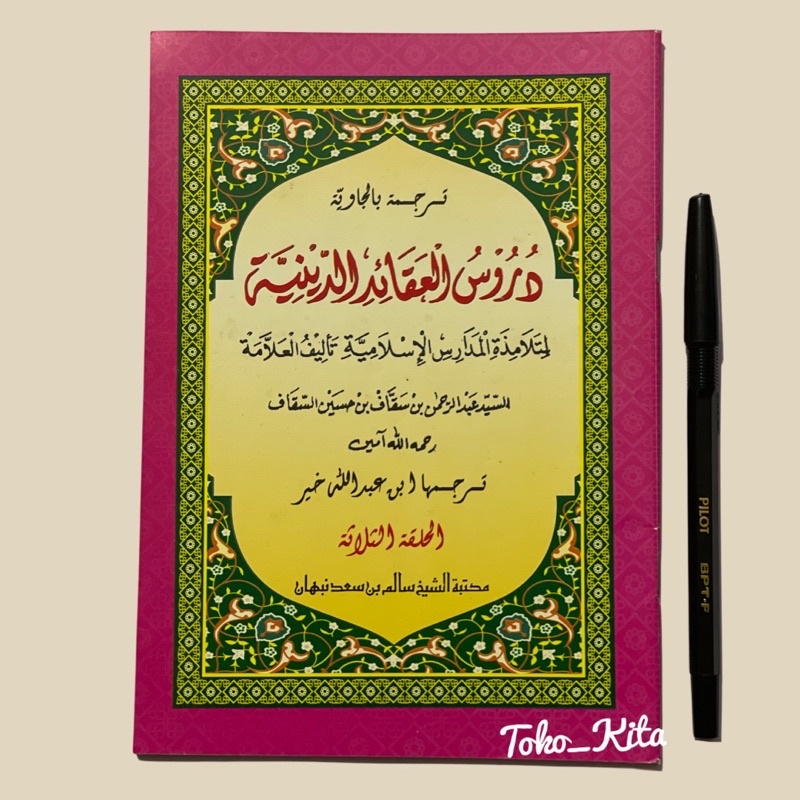 ترجمة بالجاويّة
دُرُوْسُ الْعَقَائِدِ الدِّيْنِيَّة
لِتَلَامِذَةِ الْمَدَارِسِ الْإِسْلَامِيَّةِ تَأْلِيْفُ الْعَلَّامَة
السّيّد عبد الرّحمن بن سقّاف بن حسين السّقاف
رحمه الله آمين
ترجمها ابن عبد الله خير
الحلقة الثلاثة
مكتبة الشيخ سالم بن سعد نبهان
PILOT BPT-F
Toko_Kita